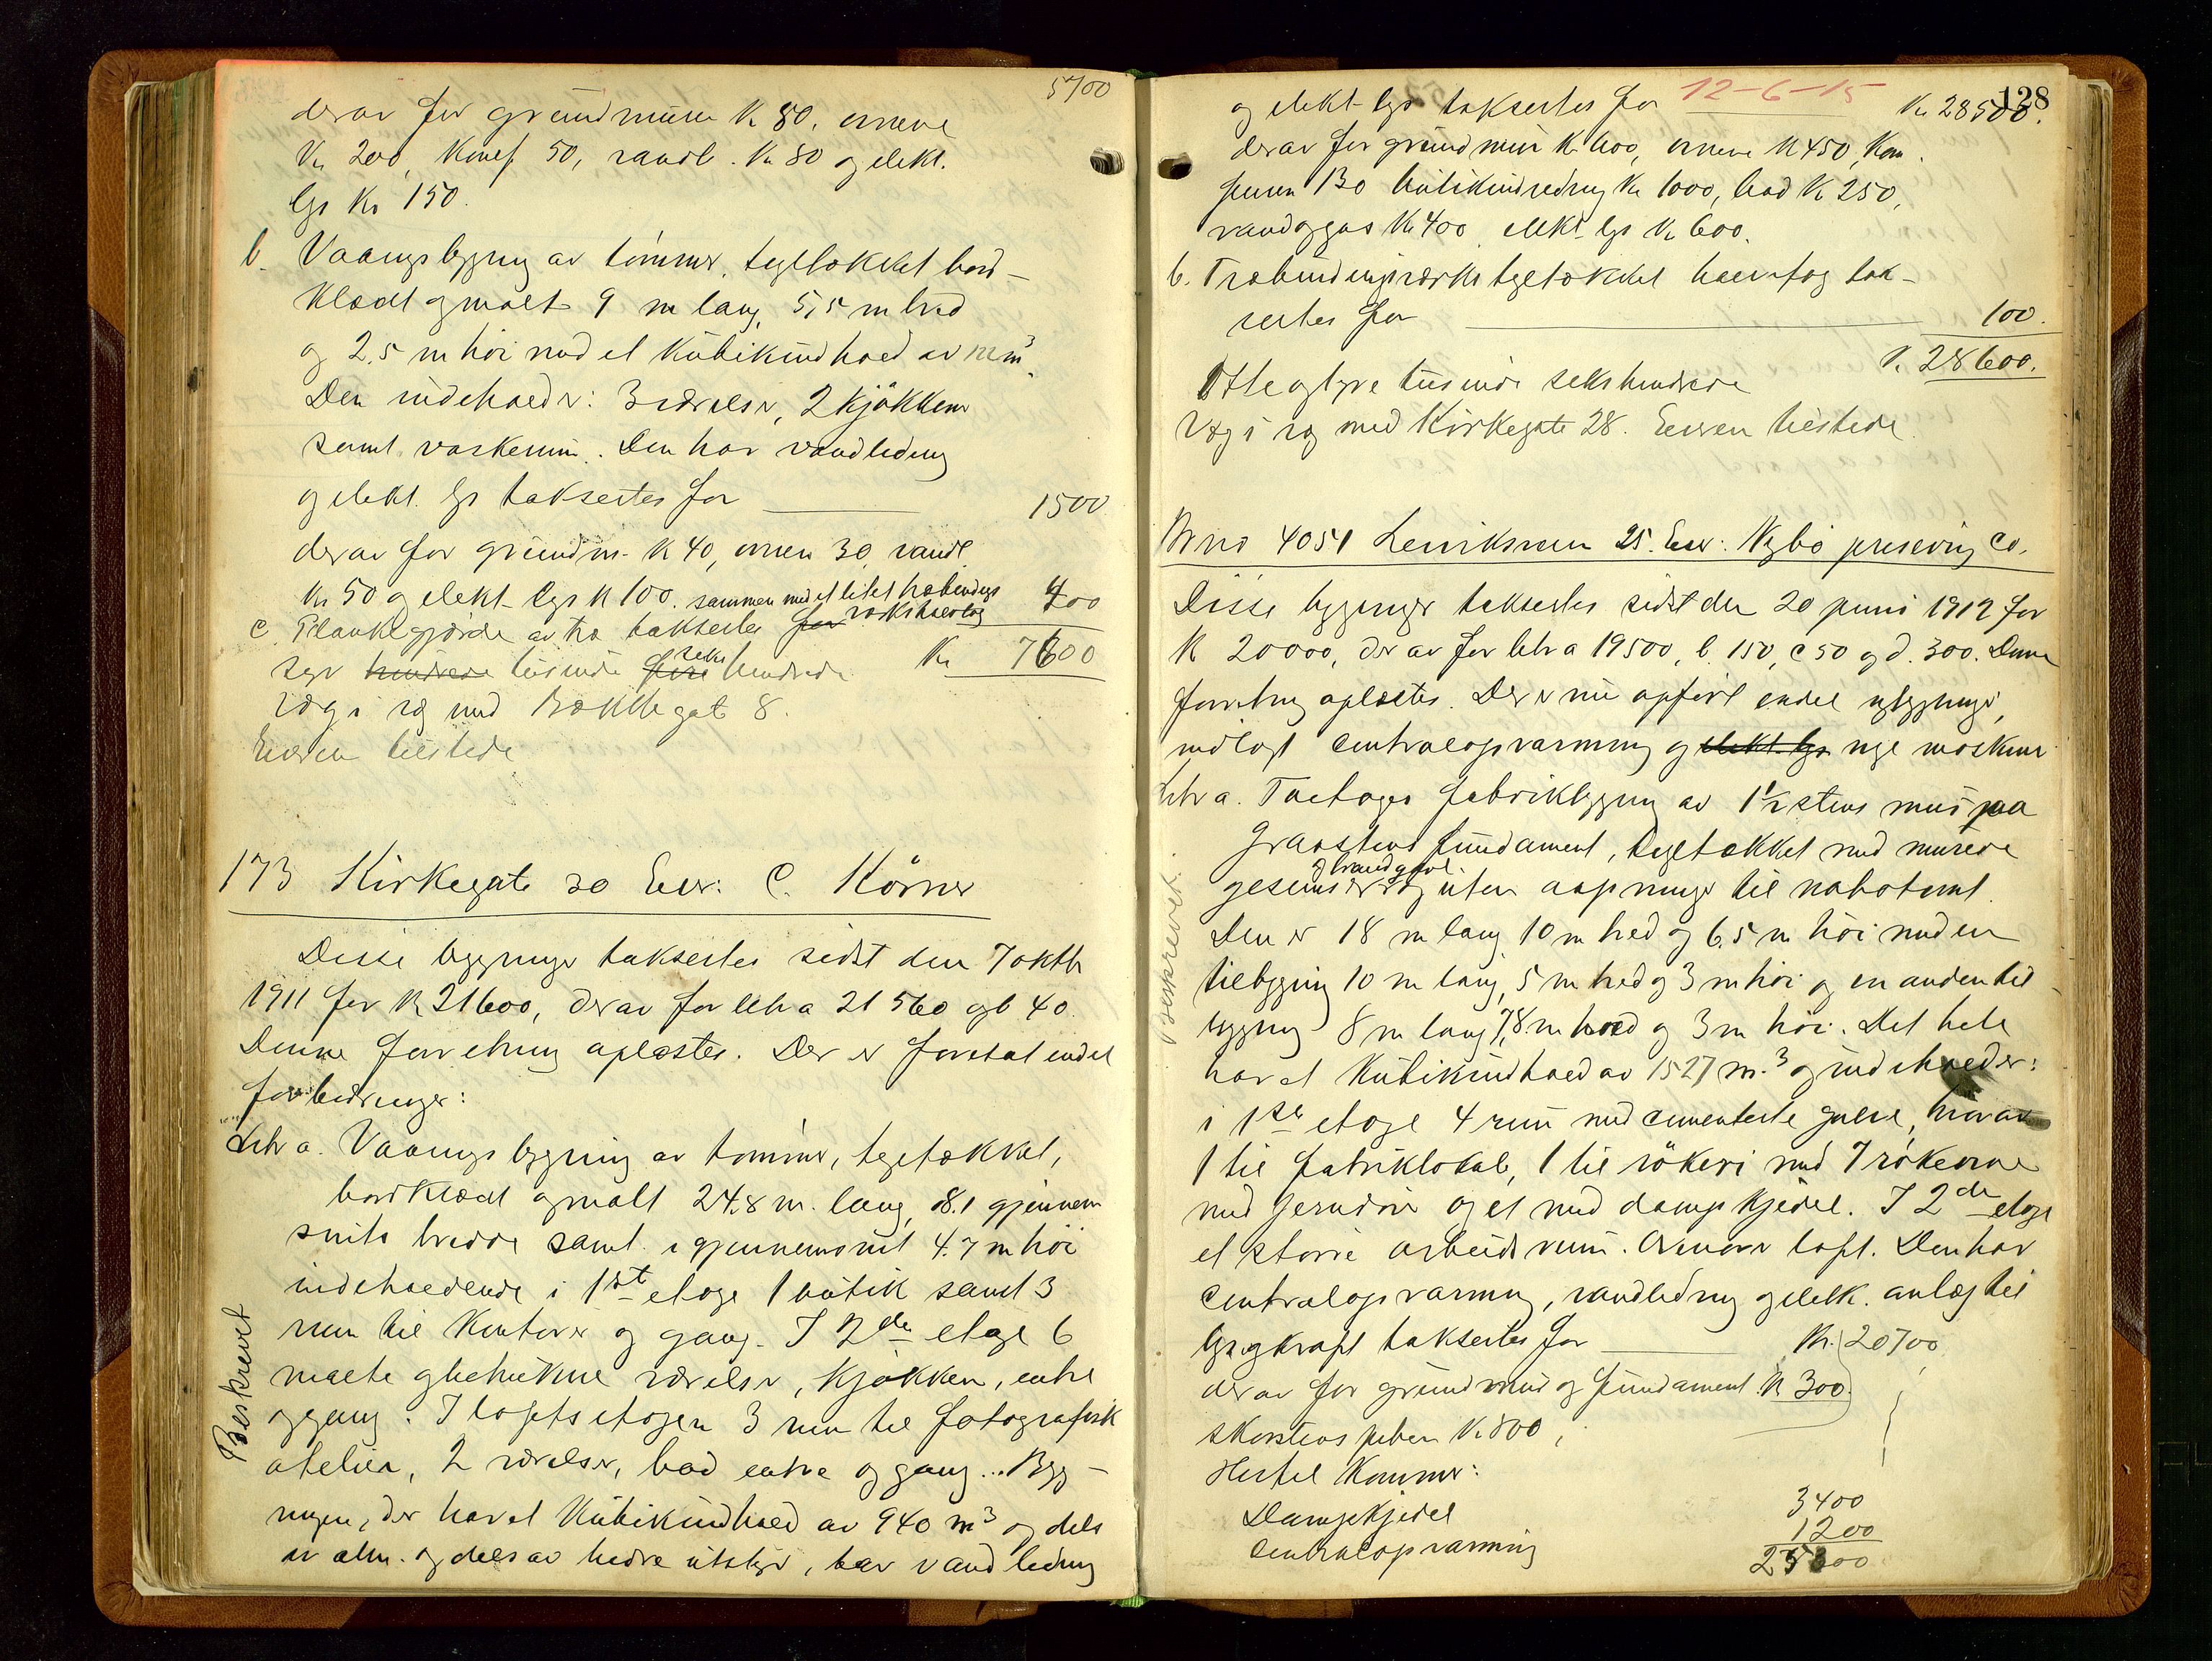 5700
derav for grundmuren K 80, ovnene
Kr 200, Komf. 50, vandl. Kr 80 og elekt.
lys Kr 150.
b. Vaangsbygning av tømmer, tegltækket bord-
klædt og malt 9 m lang, 5,5 m bred
og 2,5 m høi med et Kubikindhold av m³.
Den indeholder: 3 værelser, 2 kjøkkener
samt vaskerum. Den har vandledning
og elekt. lys takseres for 1500
derav for grundm. K 40, ovnen 30, vandl
Kr 50 og elekt. lys K 100. sammen med et litet træbindings
c. Plankegjærde av træ takseres for værkshus tag 400
Kr 7600
syv hundrede tusinde fire seks hundrede
Væg i væg med Bakkegat 8.
Eieren tilstede
173 Kirkegate 30 Eier: C. Körner
Disse bygninger takseres sidst den 7 oktb
1911 for K 21600, derav for litra 21560 og b 40.
Denne forretning oplæstes. Der er foretat endel
forbedringer:
Litr a. Vaangsbygning av tømmer, tegltækket,
bordklædt og malt 24.8 m. lang, 8.1 gjennem
snits bredde samt i gjennemsnit 4.7 m høi
indeholdende i 1st etage 1 butik samt 3
rum til Kontorer og gang. I 2den etage 6
malte og betrukne værelser, Kjøkken, entre
og gang. I loftsetagen 3 rum til fotografisk
atelier, 2 værelser, bad entre og gang. Byg-
ningen, der har et Kubikindhold av 940 m³ og dels
er alm. og dels av bedre utstyr, har vandledning
Beskrevet
128
og elekt. lys takseres for 12-6-15 Kr 28500.
derav for grundmur K 600, ovnene K 450, Kom
furen 130 butikindredning Kr 1000, bad K 250,
vand og gas Kr 400 elekt. lys Kr 600.
b. Træbindingsværks tegltækket tak-
seres for 100.
K. 28600.
Otte og tyve tusinde sekshundrede
Væg i væg med Kirkegate 28. Eieren tilstede.
Brno 4051 25. Eier: Nybø preserving Co.
Disse bygninger takseres sidst den 20 juni 1912 for
K 20000, derav for litra 19500, b. 150, c 50 og d. 300. Denne
forretning oplæstes. Der er nu opført endel nybygninger,
indlagt centralopvarmning og elekt. lys nye maskiner
Litr a. Toetages fabrikbygning av 1½ stens mur paa
Graastens fundament, tegltækket med murede
gesimser og brandgavl og uten aapninger til nabotomt.
Den er 18 m lang 10 m bred og 6.5 m høi med en
tilbygning 10 m lang, 5 m bred og 3 m høi og en anden til-
bygning 8 m lang 7,8 m bred og 3 m høi. Det hele
har et Kubikindhold av 1527 m.³ og indeholder:
i 1ste etage 4 rum med cementerte gulve, hvorav
1 til fabriklokale, 1 til røkeri med 7 røkeovne
med jerndøre og et med dampkjedel. I 2den etage
et større arbeidsrum. Ovenover loft. Den har
centralopvarmning, vandledning og elek. anlæg til
lys og kraft takseres for Kr. 20700
derav for grundmur og fundament K 300.
skorstenspiben K 800,
Hertil Kommer:
Dampkjedel 3400
centralopvarmning 1200
25300
Beskrevet.